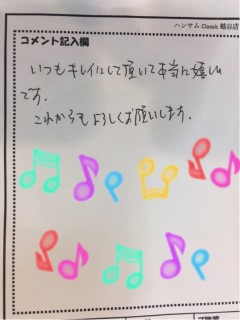 ハンサム Classic 越谷店
コメント記入欄
いつもキレイにして頂いて本当に嬉しい
です.
これからもよろしくお願いします.